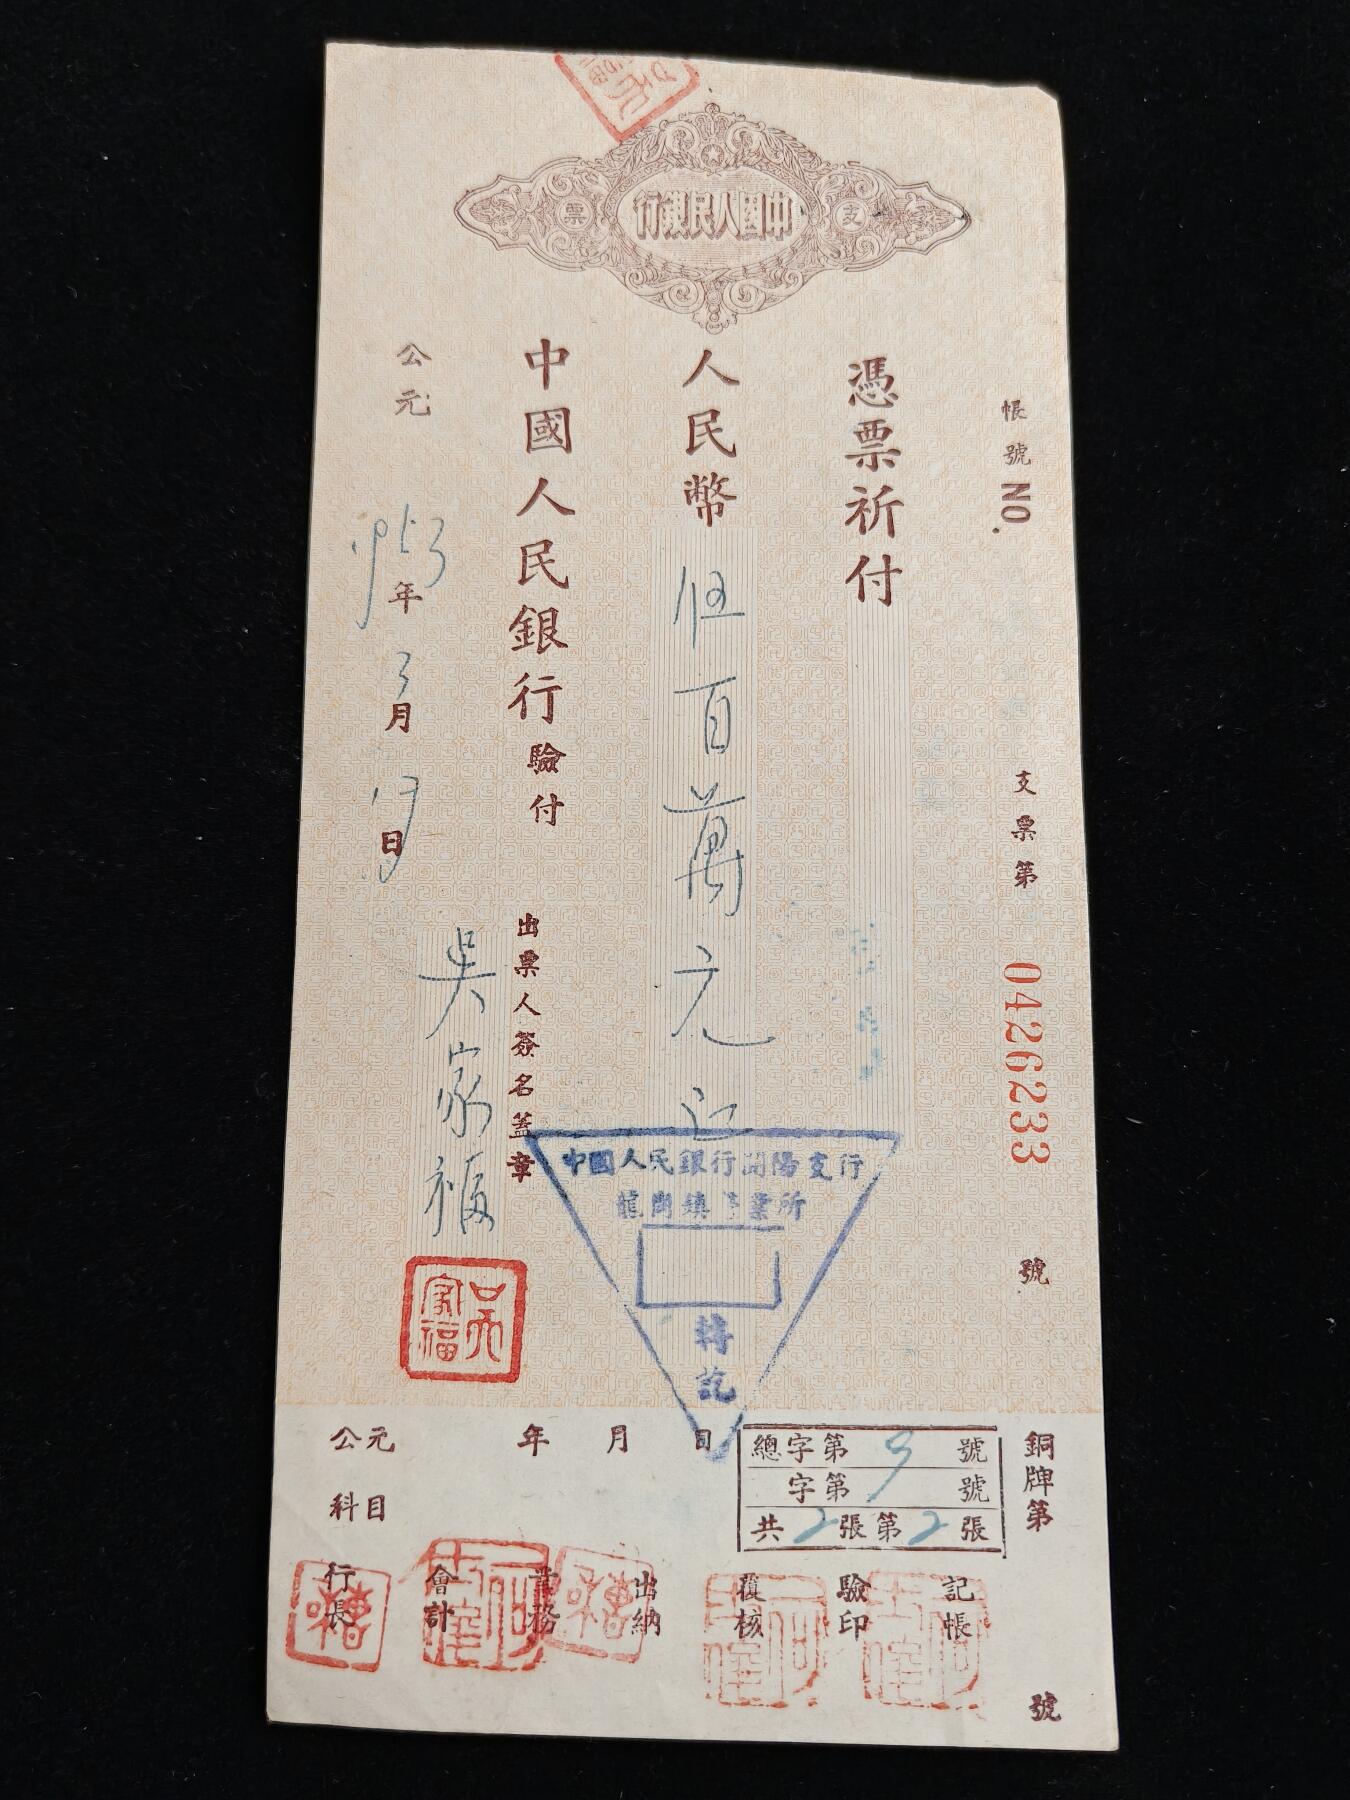 中國人民銀行
支票
帳號 NO.
支票第 0426233 號
憑票祈付
人民幣 伍百萬元正
中國人民銀行驗付
出票人簽名蓋章
吳家福
吳家福
公元 1953年3月17日
中國人民銀行開陽支行
龍崗鎮營業所
轉訖
銅牌第 號
總字第 9 號
字第 號
共 2 張第 2 張
公元 年 月 日
科目
記帳
驗印
覆核
出納
業務
會計
行長